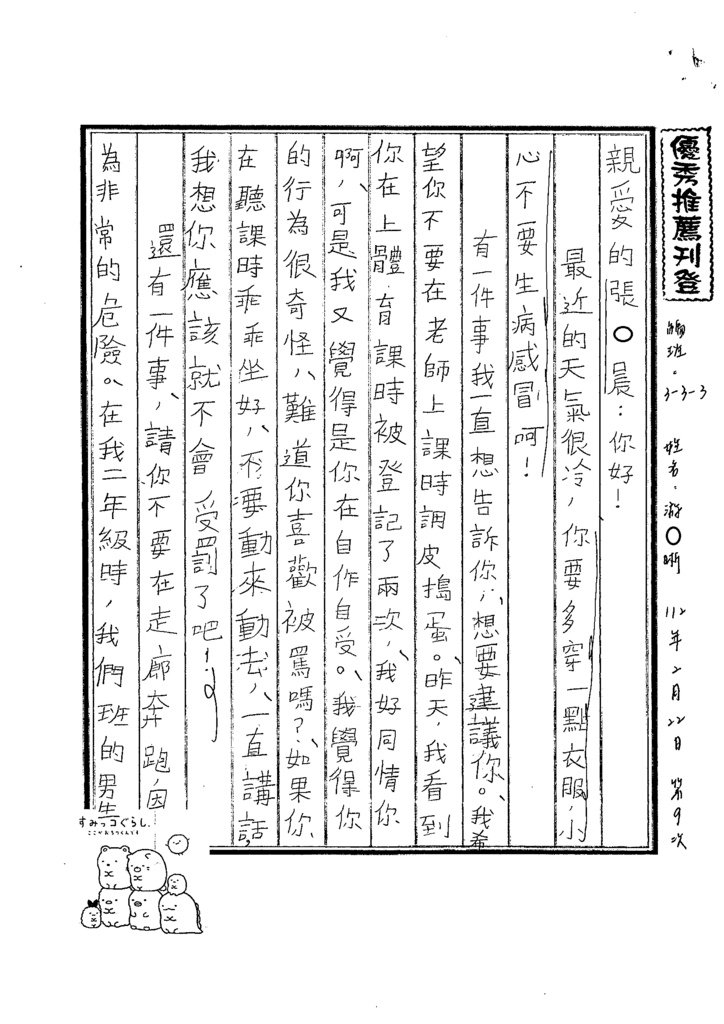 優秀推薦刊登
3-3-3 姓名：游〇晰 112年2月22日 第9次
親愛的張〇晨：你好！
最近的天氣很冷，你要多穿一點衣服，小
心不要生病感冒呵！
有一件事我一直想告訴你，想要建議你。我希
望你不要在老師上課時調皮搗蛋。昨天，我看到
你在上體育課時被登記了兩次，我好同情你
啊，可是我又覺得是你在自作自受。我覺得你
的行為很奇怪，難道你喜歡被罵嗎？如果你
在聽課時乖乖坐好，不要動來動去，一直講話，
我想你應該就不會受罰了吧！
還有一件事，請你不要在走廊奔跑，因
為非常的危險。在我二年級時，我們班的男生
すみっコぐらし
ここがおちつくんです